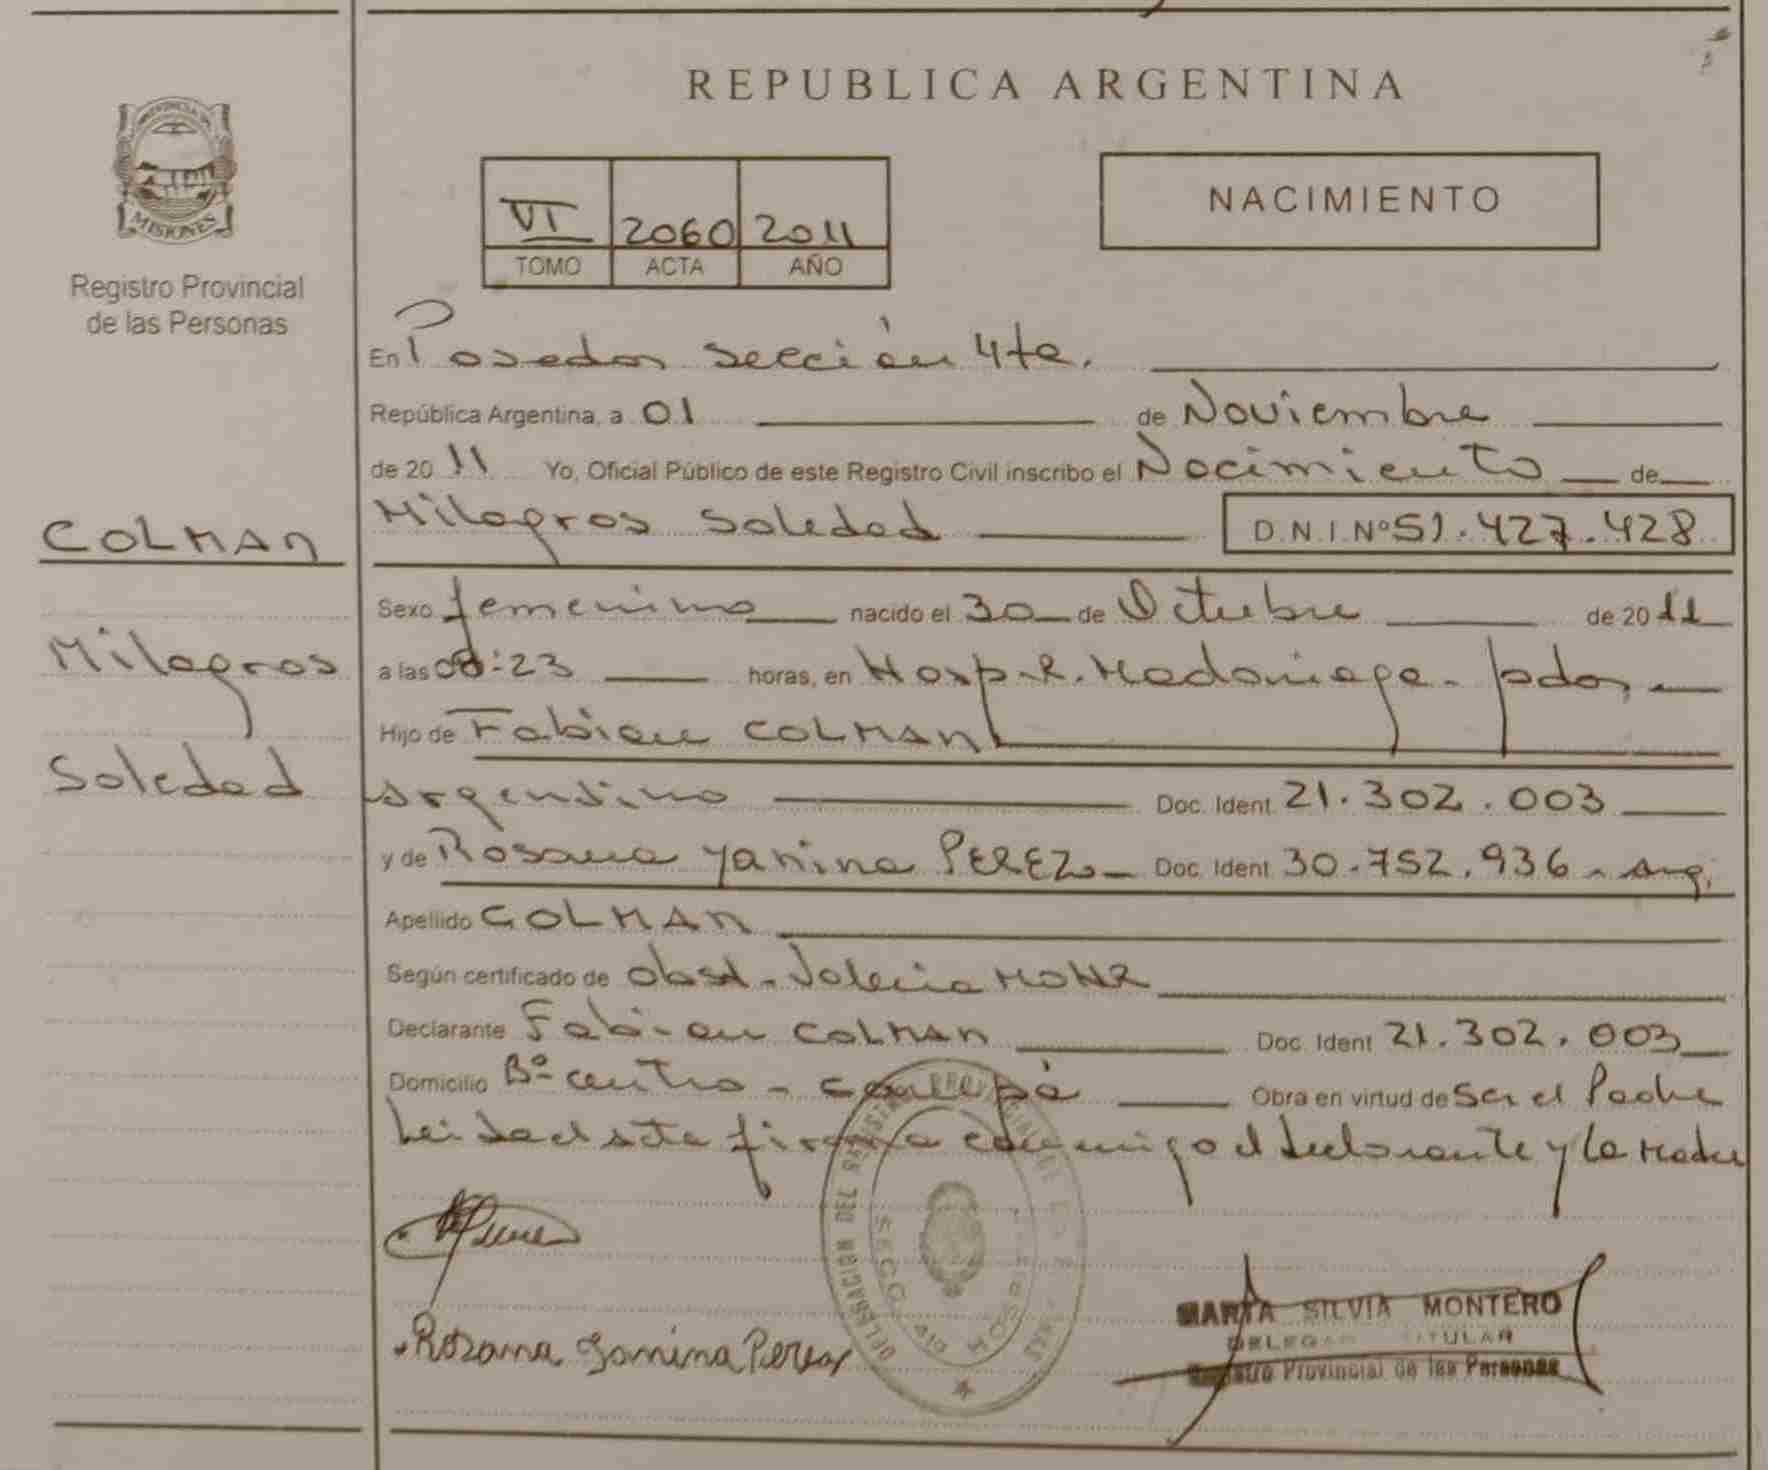 REPUBLICA ARGENTINA
PROVINCIA DE
MISIONES
Registro Provincial
de las Personas
NACIMIENTO
VI 2060 2011
TOMO ACTA AÑO
En Posadas sección 4ta.
República Argentina, a 01 de Noviembre
de 2011 Yo, Oficial Público de este Registro Civil inscribo el Nacimiento de
Milagros Soledad D.N.I.Nº 51.427.428
COLMAN
Milagros
Soledad
Sexo femenino nacido el 30 de Octubre de 2011
a las 08:23 horas, en Hosp. R. Madariaga - pdas,
Hijo de Fabian COLMAN
argentino Doc. Ident. 21.302.003
y de Rosana Yanina PEREZ Doc. Ident 30.752.936 - arg.
Apellido COLMAN
Según certificado de obst. Valeria MOHR
Declarante Fabian COLMAN Doc. Ident 21.302.003
Domicilio Bº centro - Obra en virtud de ser el Padre
Leida el acta firma conmigo el declarante y la Madre
Rosana Yanina Perez
DELEGACION DEL REGISTRO PROVINCIAL DE
MARTA SILVIA MONTERO
DELEGADA TITULAR
Registro Provincial de las Personas